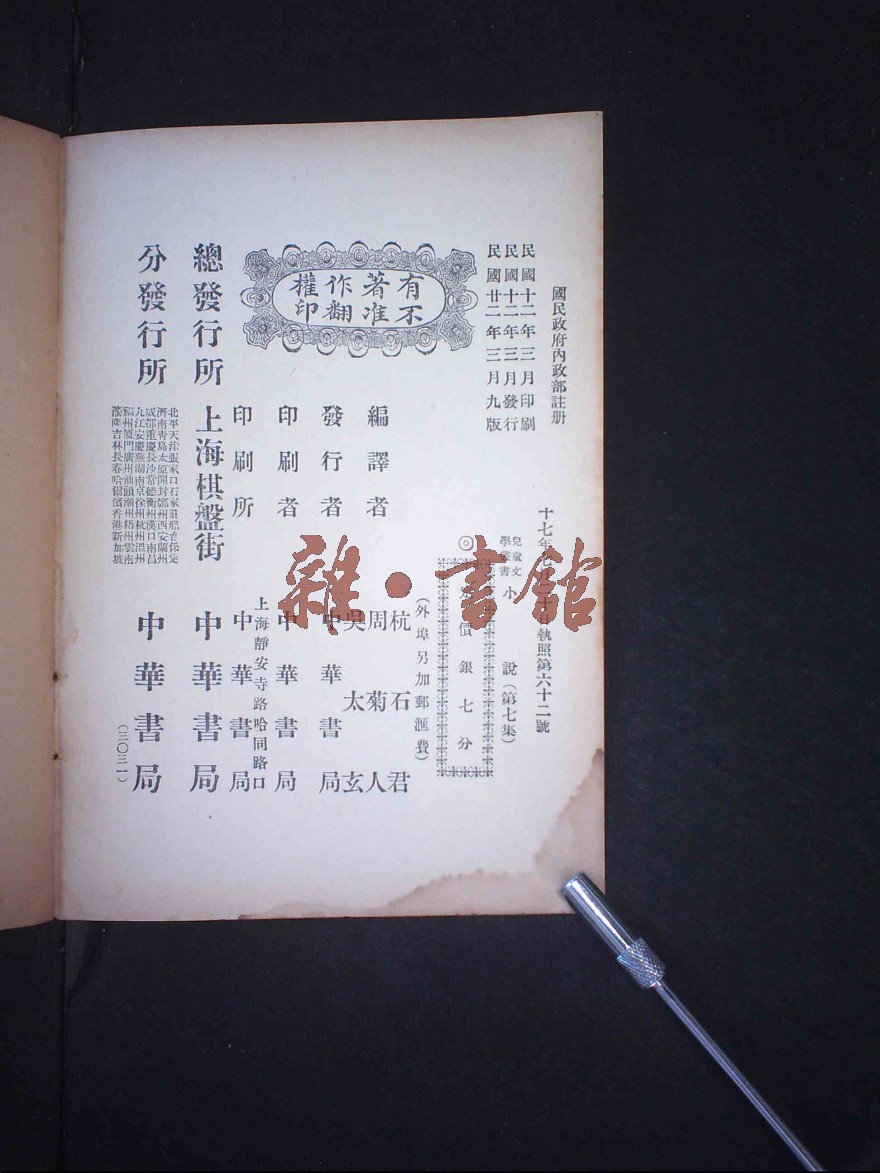 國民政府內政部註冊
十七年 執照第六十二號
民國十二年三月印刷
民國十二年三月發行
民國廿二年三月九版
兒童文學叢書 小說（第七集）
◎ 價銀七分
（外埠另加郵匯費）
有著作權
不准翻印
編譯者 杭石君
周菊人
吳太玄
發行者 中華書局
印刷者 中華書局
印刷所 上海靜安寺路哈同路口 中華書局
總發行所 上海棋盤街 中華書局
分發行所 中華書局
北平天津張家口石家莊邢台保定
濟南青島太原開封鄭州西安蘭州
成都重慶長沙常德衡州漢口南昌
九江安慶蕪湖南京徐州杭州溫州
福州廈門廣州汕頭潮州梧州雲南
瀋陽吉林長春哈爾濱香港新加坡
（三〇三一）
雜·書館